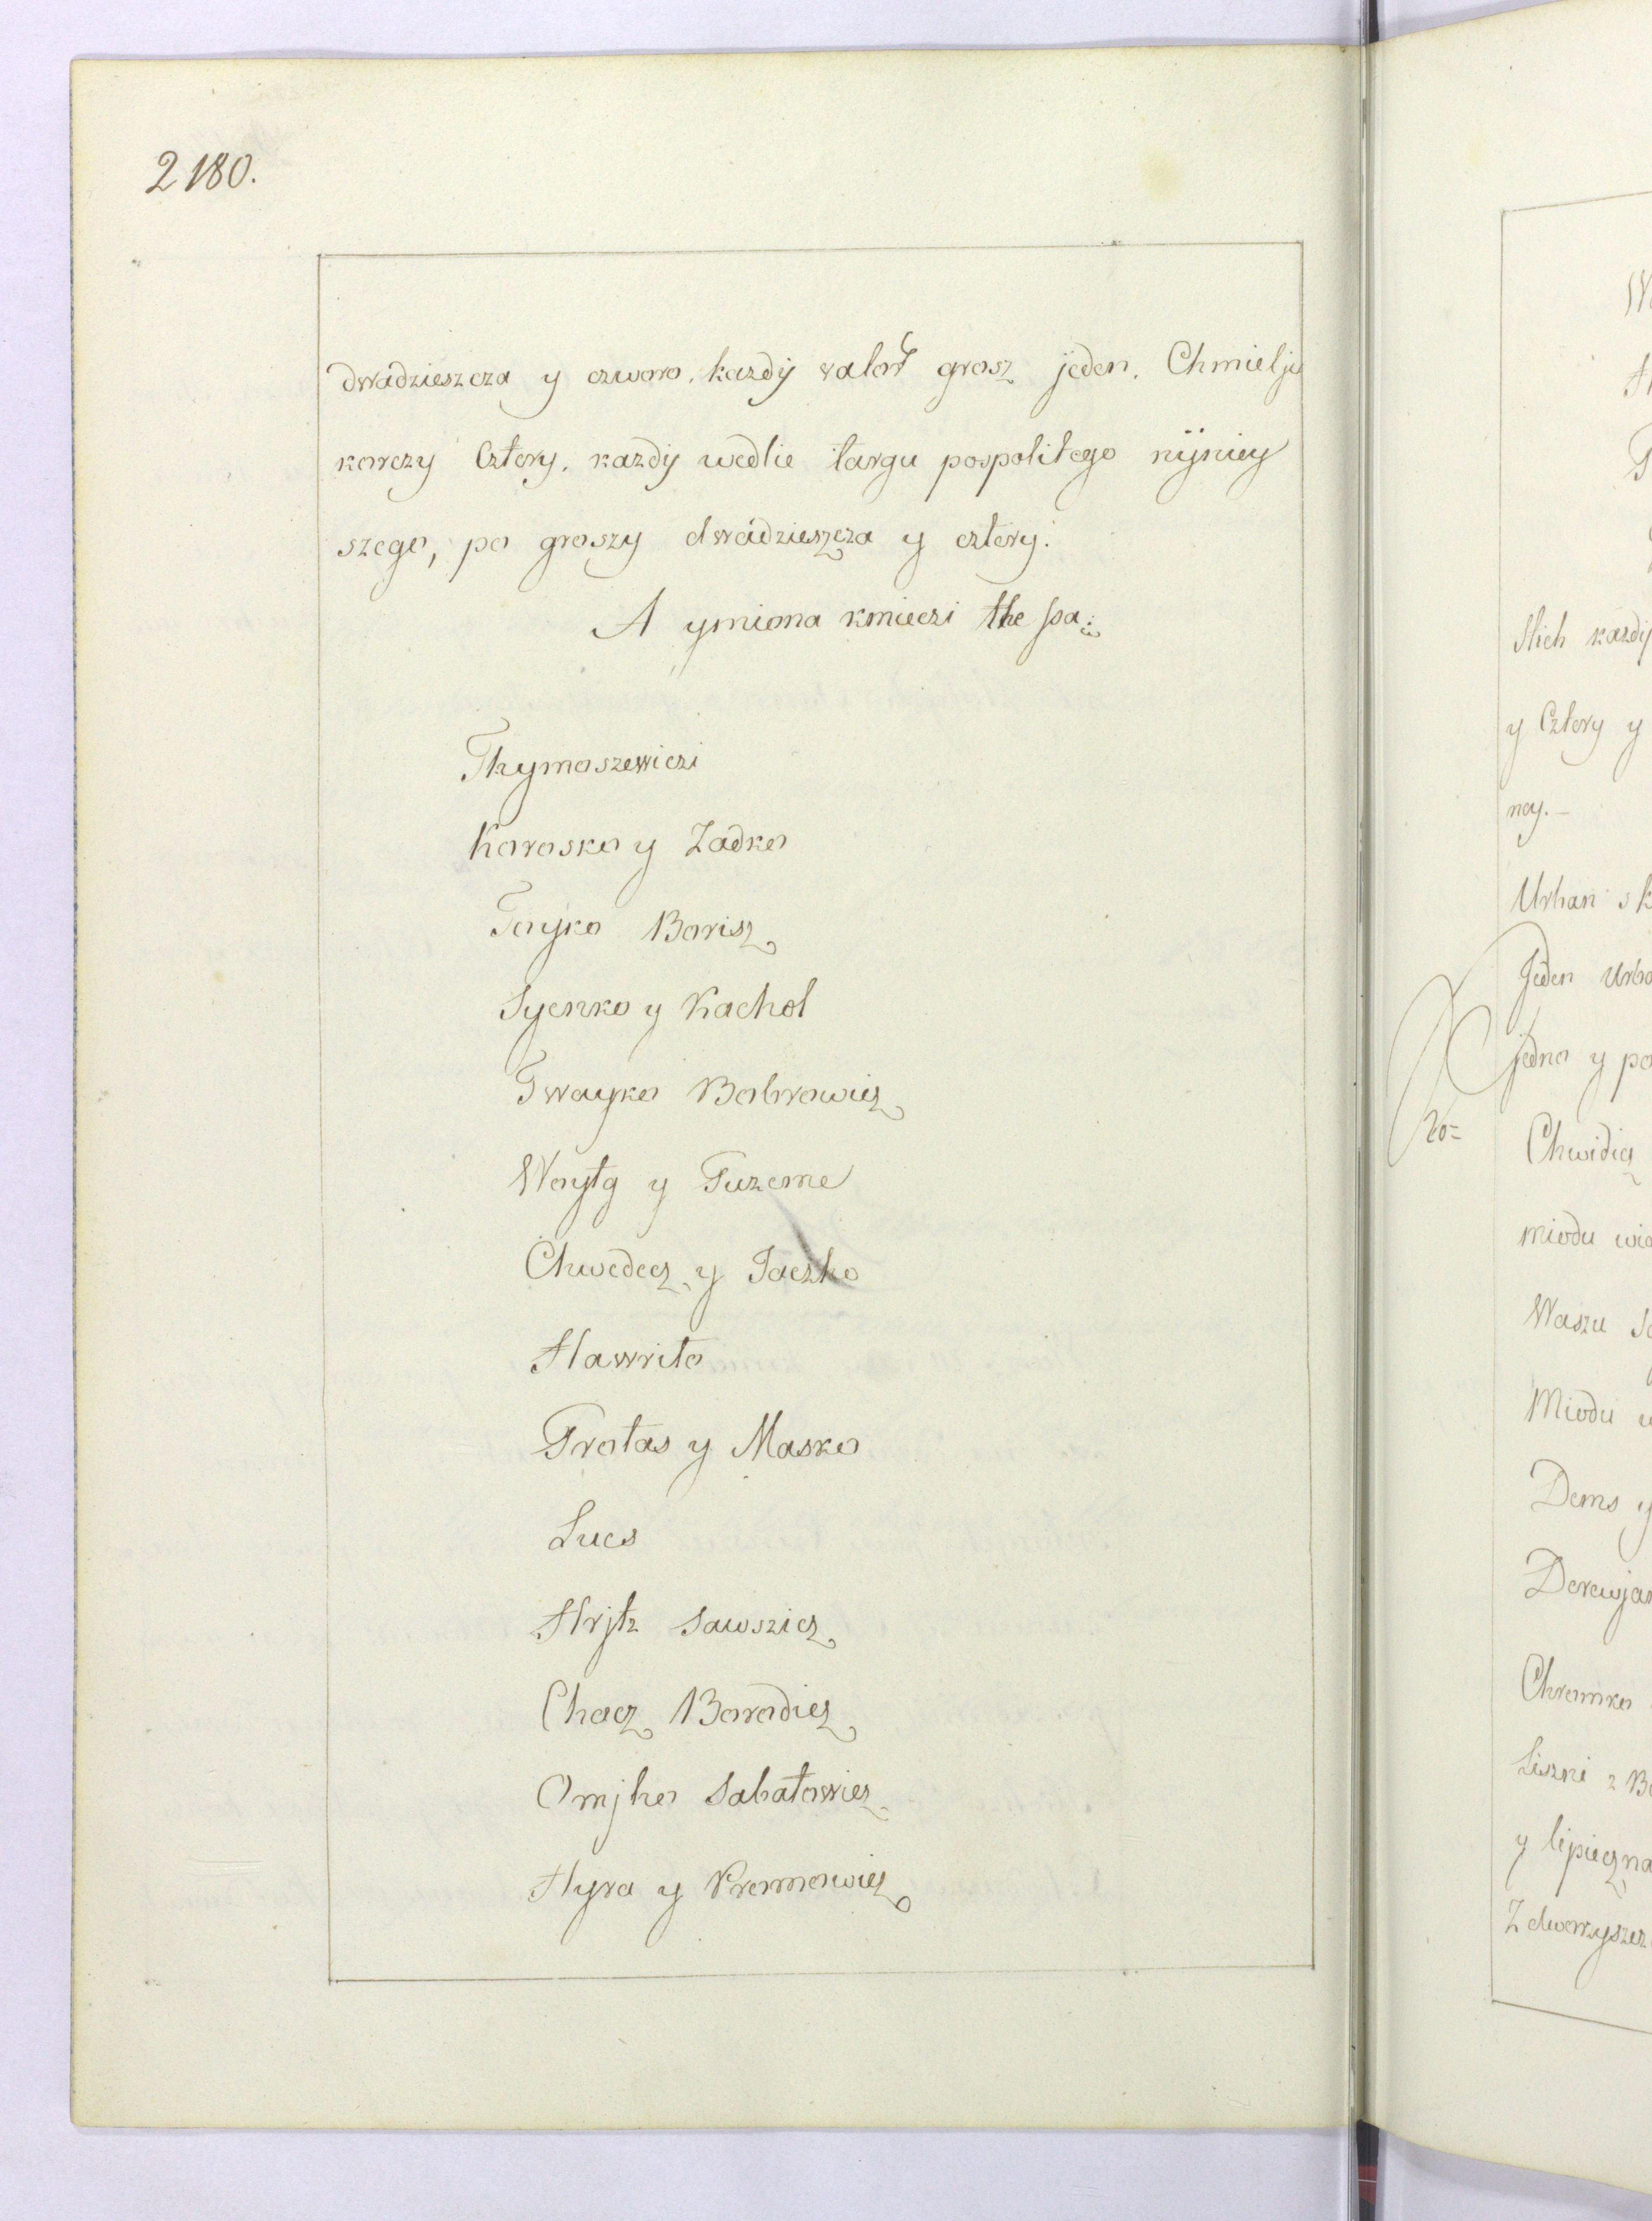 2180.
dwadzieszcza y czworo, kazdÿ valor grosz jeden. Chmielju
korczy Cztery, kazdÿ wedlie targu pospolitego nÿniey
szego, po groszy dwadzieszcza y cztery.
A ymiona kmieczi the sa:
Thymoszewiczi
Korosko y Zadko
Toyko Borisz
Syenko y Kachol
Iwayko Bobrowicz
Woytg y Tuzeme
Chwedecz y Jaczko
Hawrito
Protas y Masko
Lucs
Hrjtz Sawszicz
Chocz Borodicz
Omjtko Sabatowicz
Hyra y Kromowicz
Slich kazdÿ
y Cztery y
ney.
Urban s K
Jeden Urba
jedno y po
Chwidicz
miodu
Waszu
Miodu
Dems y
Chromko
y lipiecz